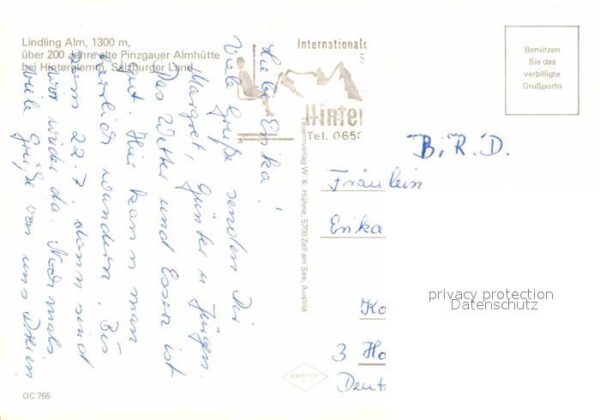 Lindling Alm, 1300 m,
über 200 Jahre alte Pinzgauer Almhütte
bei Hinterglemm, Salzburger Land
Liebe Erika!
Viele Grüße senden Dir
Margret, Günter u. Jürgen.
Das Wetter und Essen ist
gut. Hier kann man
herrlich wandern. Bis
zum 22.7. dann sind
wir wieder da. Nochmals
viele Grüße von uns Dreien
OC 765
Internationale
S
Hinter
Tel. 065
W. K. Huhne, 5700 Zell am See, Austria
Benützen
Sie das
verbilligte
Grußporto
B.R.D.
Fräulein
Erika
Ko
3 Ho
Deut
privacy protection
Datenschutz